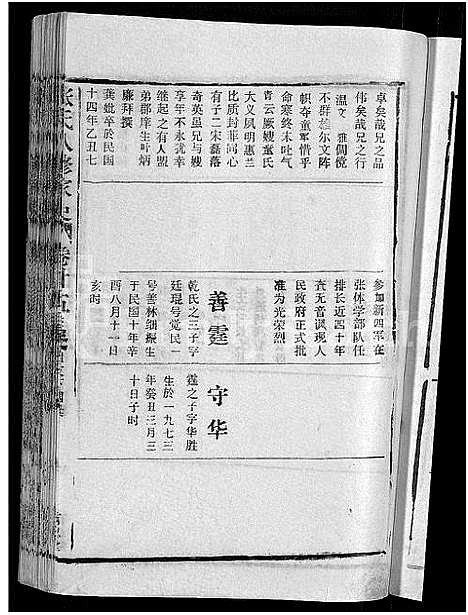 卓矣哉兄之品
伟矣哉兄之行
温文 雅倜傥
不群雄尔文阵
帜夺童军惜乎
命蹇终未吐气
青云厥嫂董氏
大义夙明惠兰
比质封菲同心
有子二宋磊落
奇英虽兄与嫂
享年不永犹幸
继起之有人盟
弟郡庠生叶炳
廉拜撰
龚妣卒於民国
十四年乙丑七
参加新四军在
张体学部队任
排长近四十年
查无音讯现人
民政府正式批
准为光荣烈
善霆
乾氏之三子字
廷琨号觉民一
号善林细振生
于民国十年辛
酉八月十一日
亥时
守华
霆之子字华胜
生於一九七三
年癸丑三月三
十日子时
张氏八修家史 卷廿五